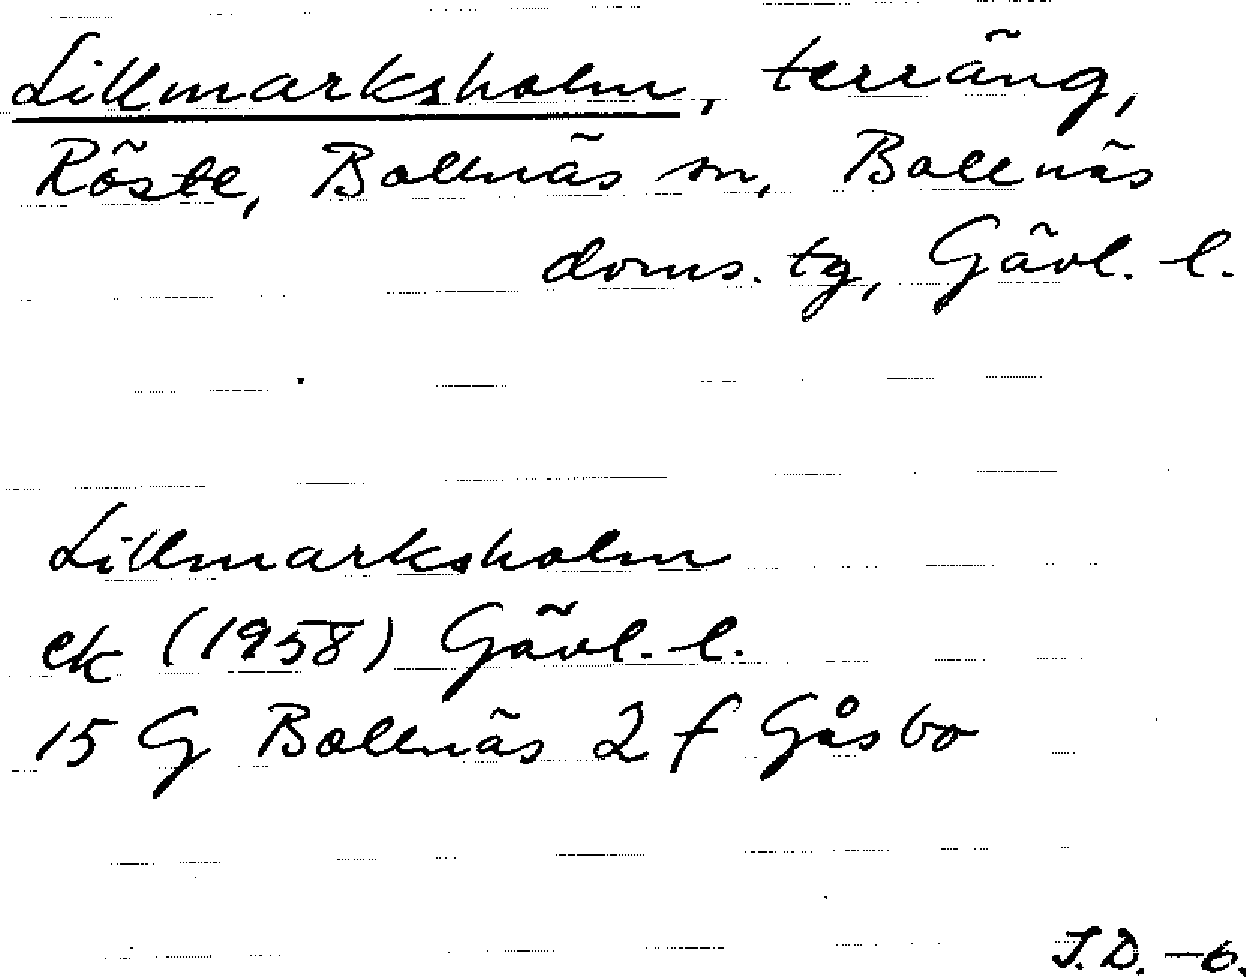 Lillmarksholm, terräng,
Röste, Bollnäs sn, Bollnäs
doms. tg, Gävl. l.
Lillmarksholm
ek (1958) Gävl. l.
15 G Bollnäs 2 f Gåsbo
J.D. -b.